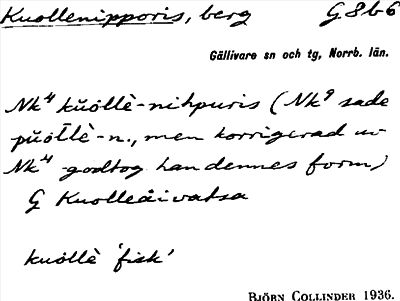 Kuollenipporis, berg G 8 b 6
Gällivare sn och tg, Norrb. län.
Nk⁴ kŭòllè-nihpuris (Nk⁹ sade
pŭòllè-n., men korrigerad av
Nk⁴ godtog han dennes form)
G Kuolleåivatsa
kuòllè 'fisk'
BJÖRN COLLINDER 1936.